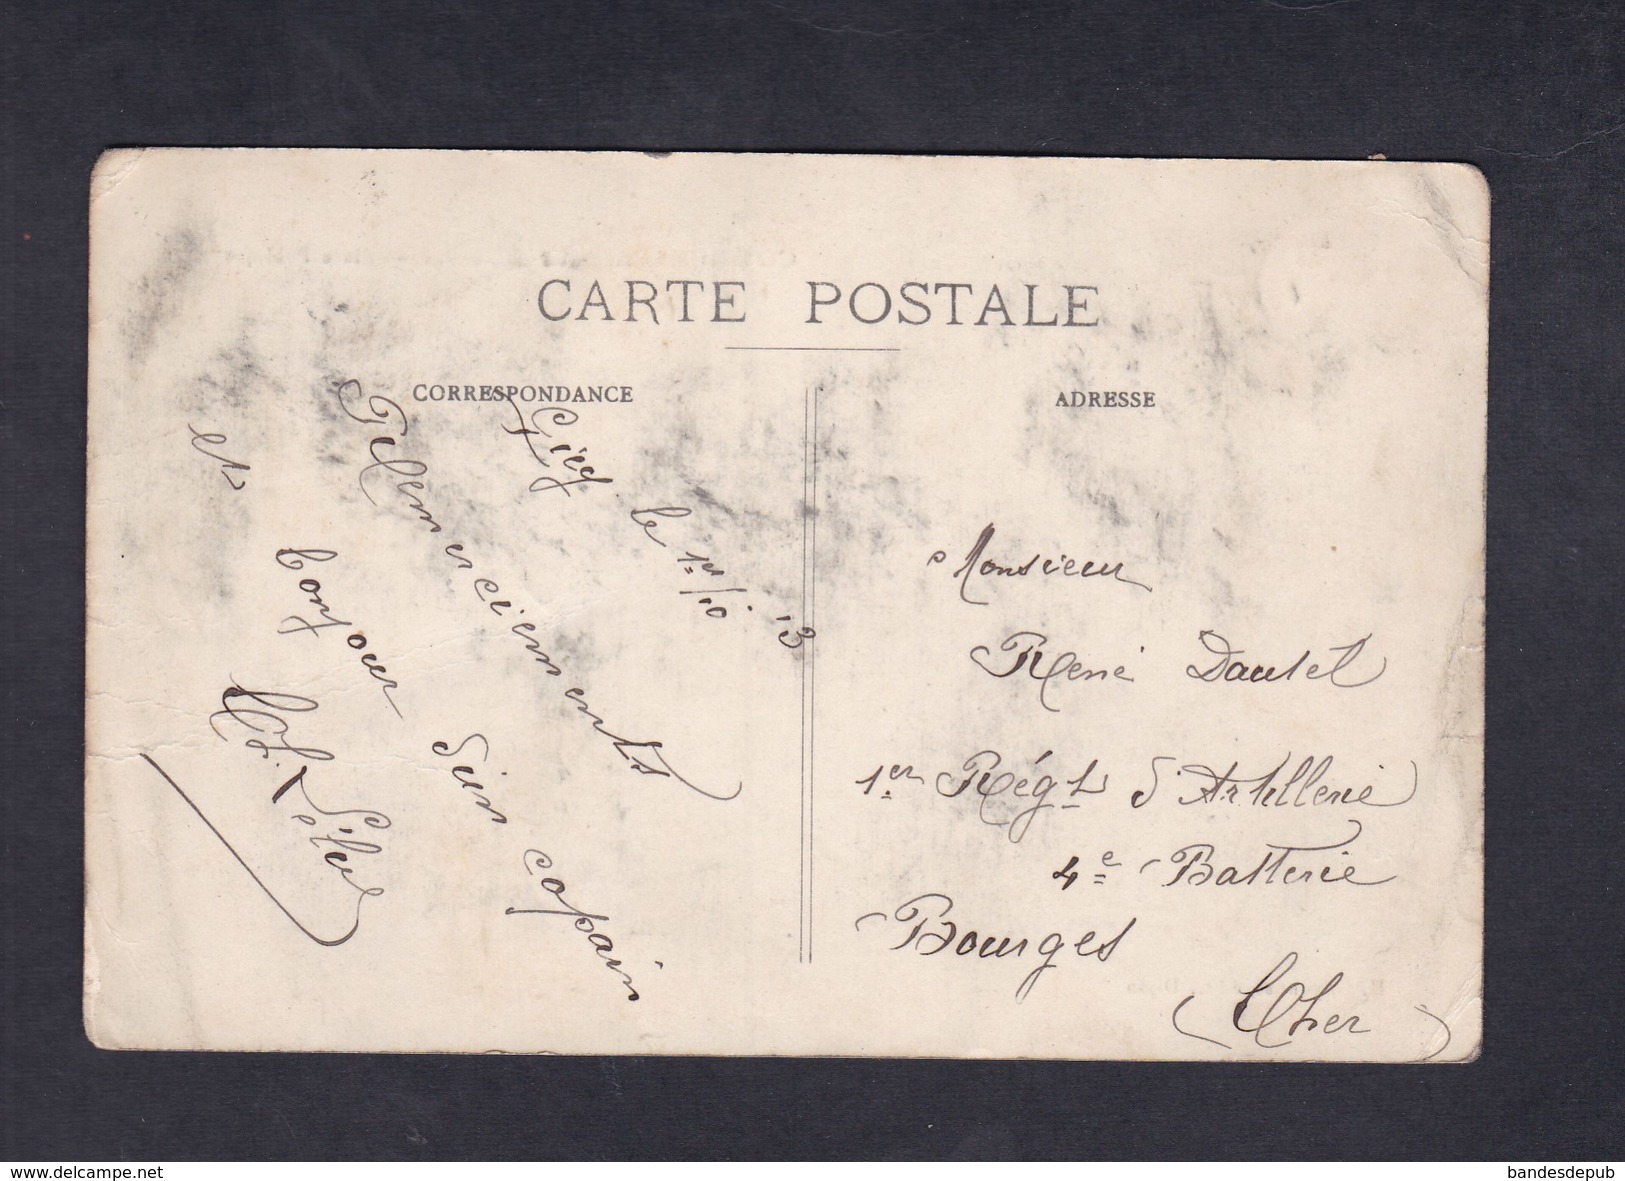 CARTE POSTALE
CORRESPONDANCE
ADRESSE
le 1er/10 13
Remerciements
et bonjour d'un copain
Monsieur
René Dautel
1er Rég.t d'Artillerie
4e Batterie
Bourges
(Cher)
www.delcampe.net
bandesdepub